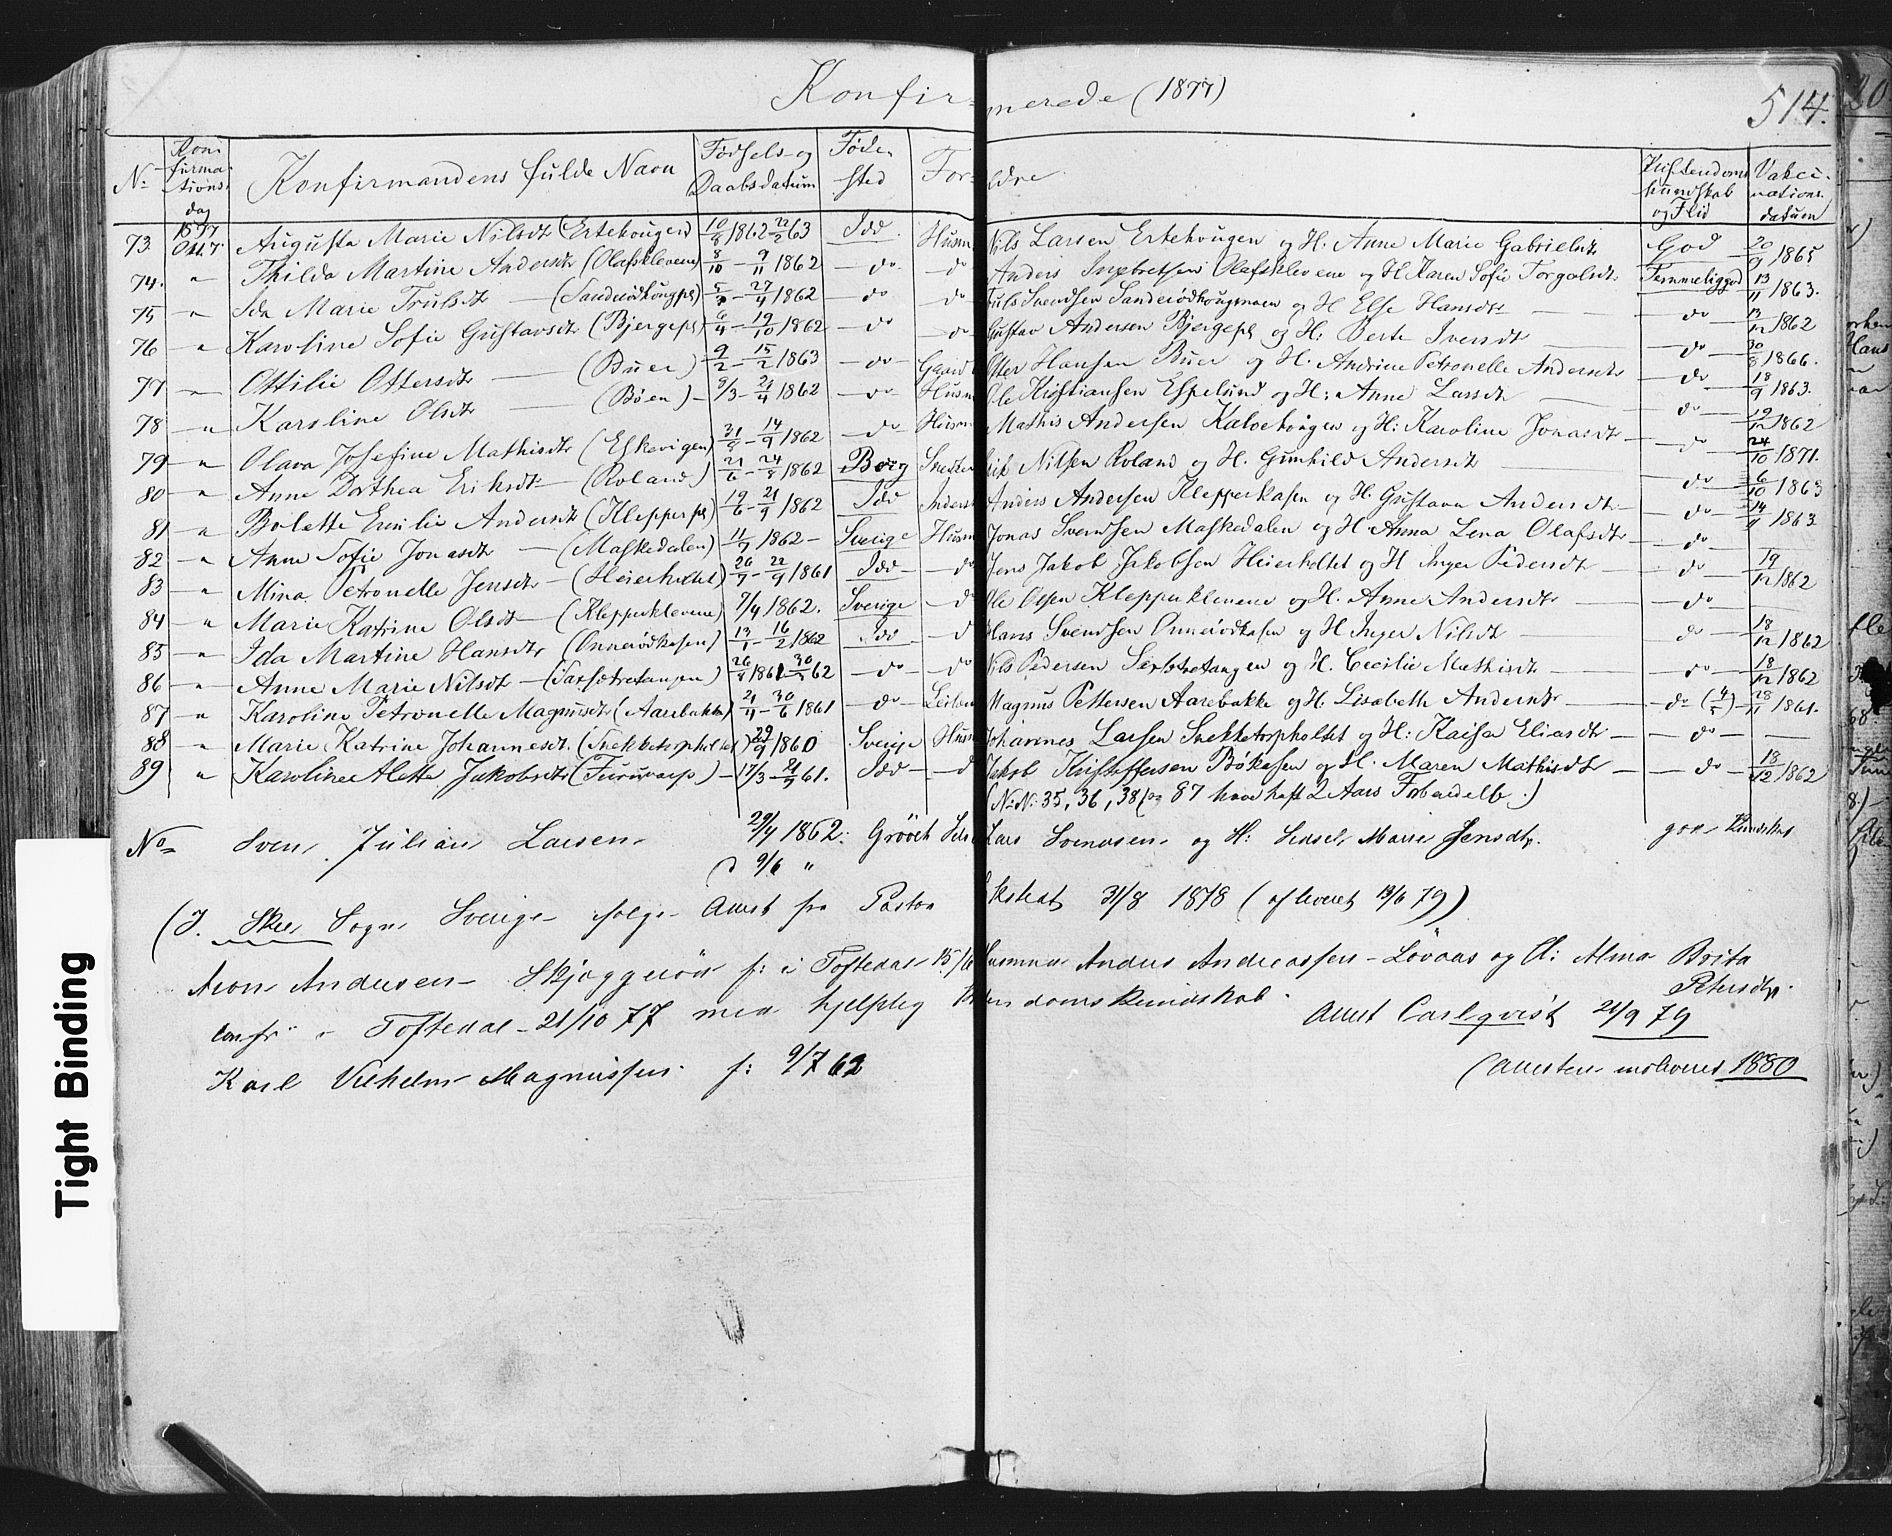 Konfirmerede (1877)
514.
No Konfirmationsdag Konfirmandens fulde Navn Fødsels og Daabsdatum Fødested Forældre Kristendomskundskab og Flid Vakcinationsdatum
73. 1877 Okt. 7. Augusta Marie Nilsdt (Ertehougen) 10/8 1862 22/2 63 Idd. Husm Nils Larsen Ertehougen og H. Anne Marie Gabrielsdt God 20/9 1865
74. " Thilda Martine Andersdt (Olafsklevene) 8/10 - 9/11 1862 - do - do Anders Ingebretsen Olafsklevene og H. Karen Sofie Torgalsdt Temmeliggod 13/11 1863.
75 - " Ida Marie Trulsdt - (Sanderødhougpl) 27/4 1862 - do do Truls Svendsen Sanderødhougmoen og H Else Hansdt - do - 13/12 1862
76 - " Karoline Sofie Gustavsdt (Bjergepl) 6/4 - 19/10 1862 - do do Gustav Andersen Bjergepl og H: Berte Iversdt - do - 30/8 1866.
77 - " Ottilie Ottersdt - (Buer) 9/2 - 15/2 1863 - do - Gaard Otter Hansen Buer og H. Andrine Petronelle Andersdt do 18/9 1863.
78 - " Karoline Olsdt - (Bøen) - 8/3 - 21/4 1862 - do - Husm Ole Kristiansen Espelund og H: Anne Larsdt - do 19/12 1862
79 - " Olava Josefine Mathisdt (Eskevigen) 14/9 1862 - do Husm Mathis Andersen Kalvehougen og H: Karoline Jonasdt - do - 24/10 1871.
80 - " Anne Dorthea Eriksdt - (Roland) 21/6 - 24/8 1862 Borg Snedker Erik Nilsen Roland og H. Gunhild Andersdt do - 6/10 1863
81 - " Bolette Emilie Andersdt (Klepperpl) 19/6 - 21/9 1862 Idd Inderst Anders Andersen Klepperkasen og H. Gustava Andersdt - do - 14/11 1863.
82 - " Anne Sofie Jonasdt - (Maskedalen) 11/9 1862 - Sverige Husm Jonas Svendsen Maskedalen og H Anna Lena Olafsdt - do -
83 - " Mina Petronelle Jensdt - (Heierholtet) 26/7 - 22/9 1861 Idd - do Jens Jakob Jakobsen Heierholtet og H Inger Pedersdt - do - 19/12 1862
84 - " Marie Katrine Olsdt - (Klepperklevene) 7/4 1862. Sverige - d Ole Olsen Klepperklevene og H. Anne Andersdt - do -
85 - " Ida Martine Hansdt (Ønnerødkasen) 13/1 - 16/2 1862 Idd - d Hans Svendsen Ønnerødkasen og H Inger Nilsdt do - 18/12 1862
86 - " Anne Marie Nilsdt - 1861 - 62 - do - do Nils Pedersen og H. Cecilie Mathisdt - do - 18/12 1862
87 - " Karoline Petronelle Magnusdt (Aarebakke) 21/4 - 30/6 1861 - do - Leilæn Magnus Pettersen Aarebakke og H. Lisabeth Andersdt - do (4/5) - 28/11 1861.
88 - " Marie Katrine Johannesdt. (Snekketorpholtet) 29/9 1860 Sverige Husm Johannes Larsen Snekketorpholtet og H: Kaisa Eliasdt - - do - -
89 " Karoline Alette Jakobsdt (Furuvarp) - 17/3 - 21/7 61. Idd - - d Jakob Kristoffersen Bøkasen og H. Maren Mathisdt - - do - 18/12 1862
(No No 35, 36, 38 og 87 have havt 2 Aars Forberedelse.)
No Sven Julian Larsen 29/4 1862. Lars Svendsen og H: Marie Jensdtr. god Kundskab
d 9/6 "
(I. Skee Sogn Sverige - følge Attest fra Pastor Ekstedt 31/8 1878 (afleveret 13/6 79)
Aron Andersen - Skjøggerød f: i Toftedal 15/6 Husmand Anders Andreassen - Løvaas og H: Alma Brita Petersdtr.
Confr. i Toftedal - 21/10 77 med hjelplig Kristendomskundskab.
Attest Carlqvist 21/9 79
Karl Vilhelm Magnussen f: 9/7 62
(Attesten indleveret 1880
Tight Binding